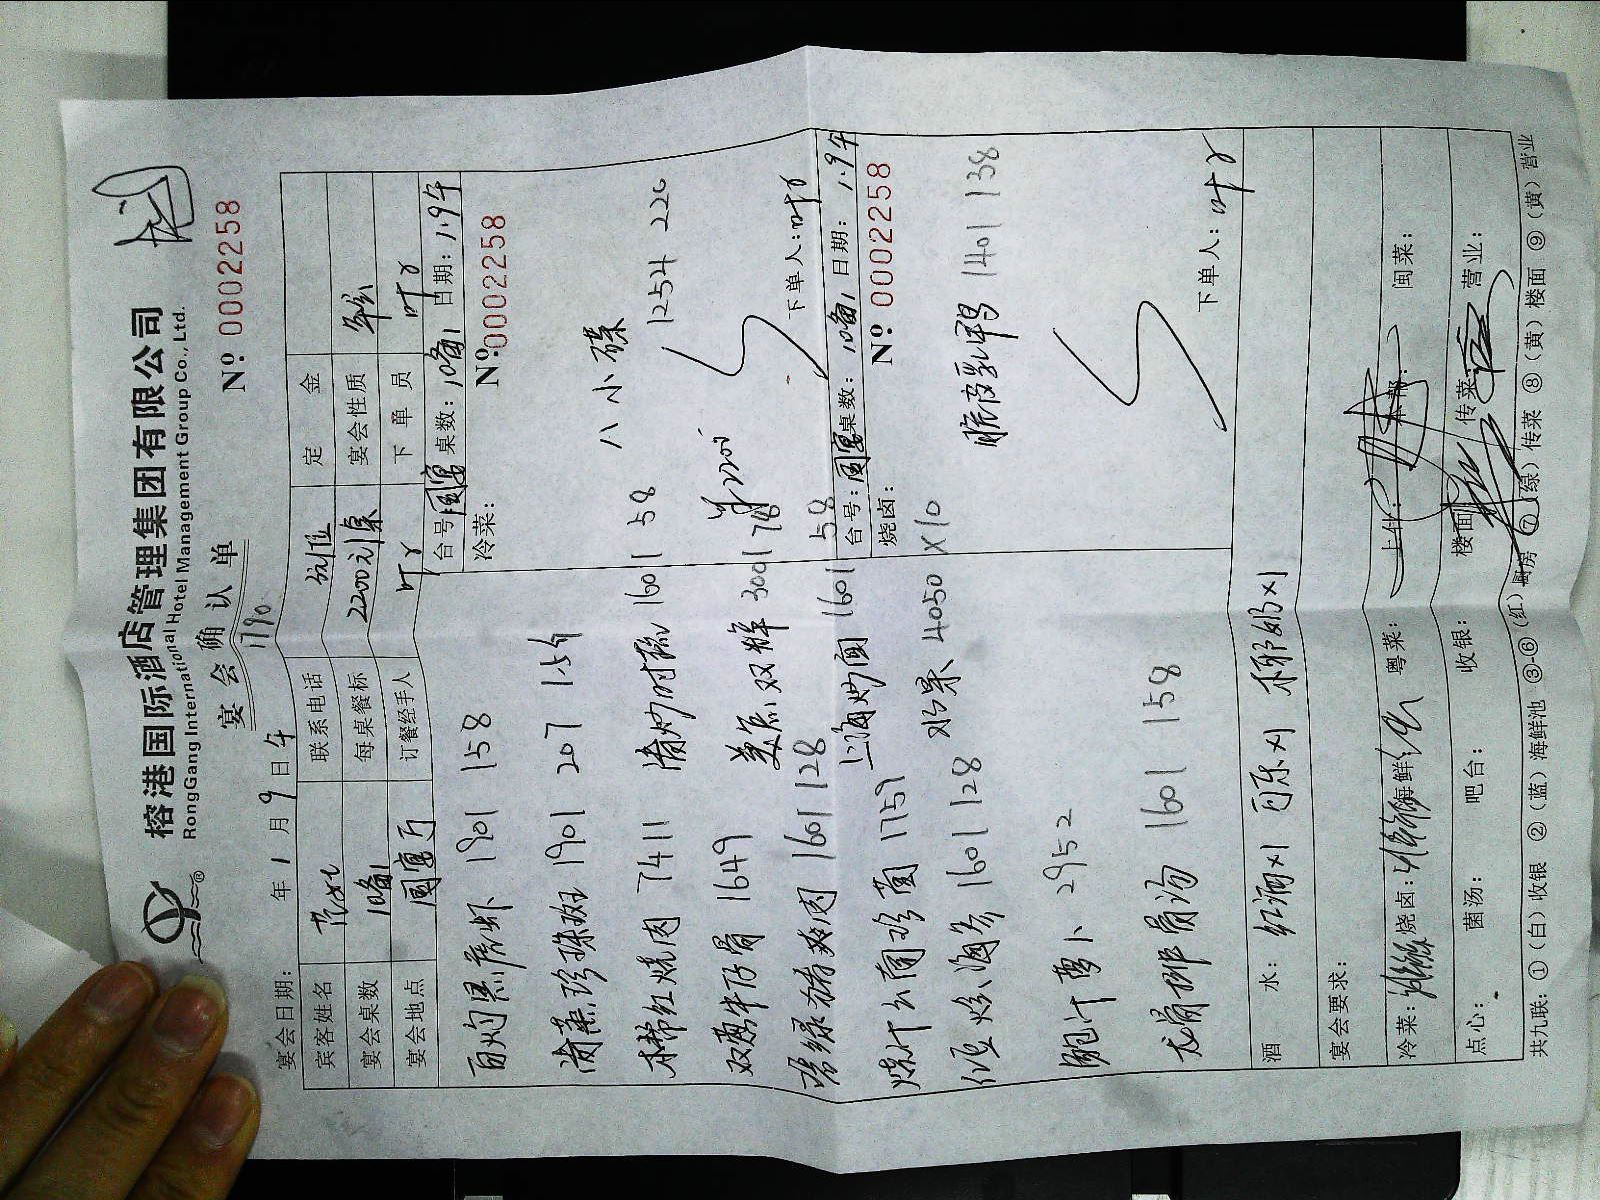 榕港国际酒店管理集团有限公司
RongGang International Hotel Management Group Co., Ltd.
宴会确认单
1790
Nº 0002258
宴会日期： 年 1 月 9 日 午
宾客姓名 联系电话 定金
宴会桌数 10备1 每桌餐标 2200元/桌 宴会性质
宴会地点 国宴厅 订餐经手人 叶 下单员 叶
台号 国宴 桌数：10备1 日期：1.9午
冷菜： Nº 0002258
八小碟 1254 226
下单人：叶
台号：国宴 桌数：10备1 日期：1.9午
烧卤： Nº 0002258
脆皮乳鸭 1401 138
下单人：叶
白灼黑虎虾 1901 158
清蒸珍珠斑 1901 207 1.5斤
红烧肉 7411 清灼时蔬 1601 58
双葱牛仔骨 1649 美点双辉 3001 78
1601 128 上海炒面 1601 58
云南珍菌 1757 水果 4050 ×10
海参 1601 128
鲍汁萝卜 2952
龙骨排骨汤 1601 158
酒水： 红酒×1 可乐×1 椰奶×1
宴会要求：
冷菜： 烧卤： 海鲜 粤菜： 上什： 本帮： 闽菜：
点心： 菌汤： 吧台： 收银： 楼面 传菜 营业：
共九联：①（白）收银 ②（蓝）海鲜池 ③-⑥（红）厨房 ⑦（绿）传菜 ⑧（黄）楼面 ⑨（黄）营业